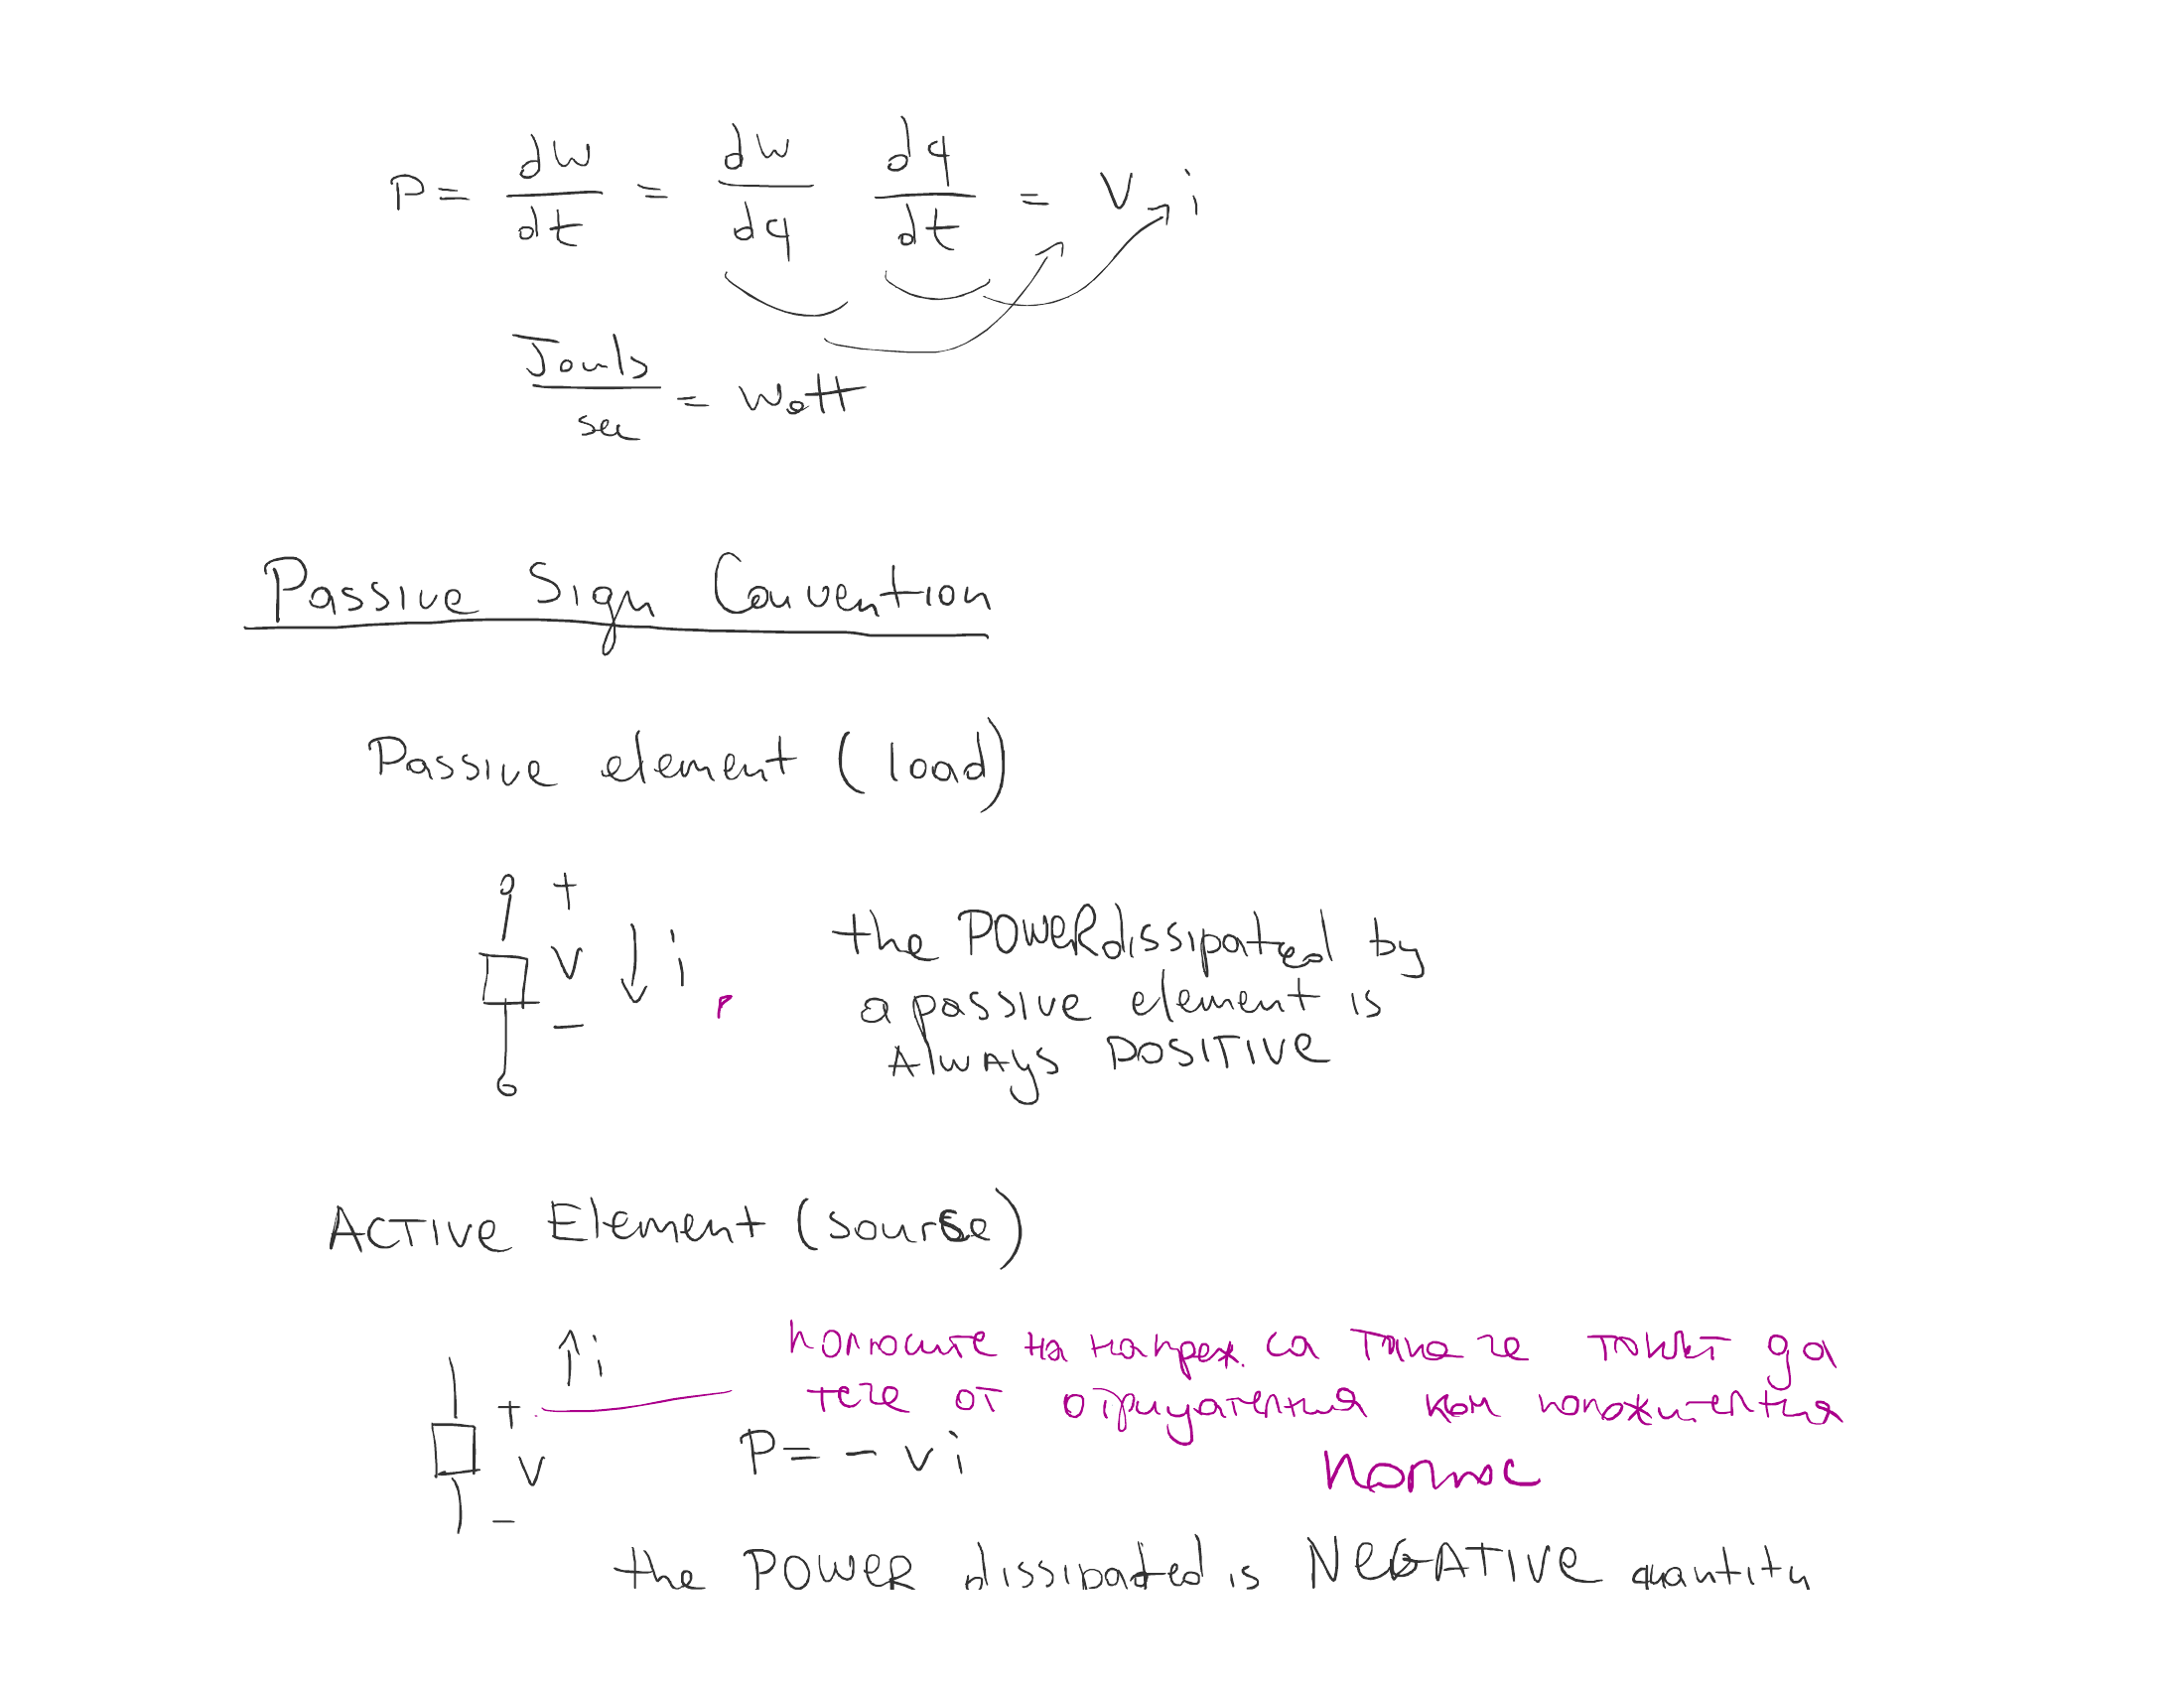 P = dw/dt = dw/dq dq/dt = V i
Jouls/sec = Watt
Passive Sign Convention
Passive element (load)
+
V i
-
the POWER dissipated by
a passive element is
Always POSITIVE
ACTIVE Element (sourse)
i
полюсите на напреж. са така че токът да
тече от отрицателния към положителния
полюс
+
V
-
P = - vi
the POWER dissipated is NEGATIVE quantity